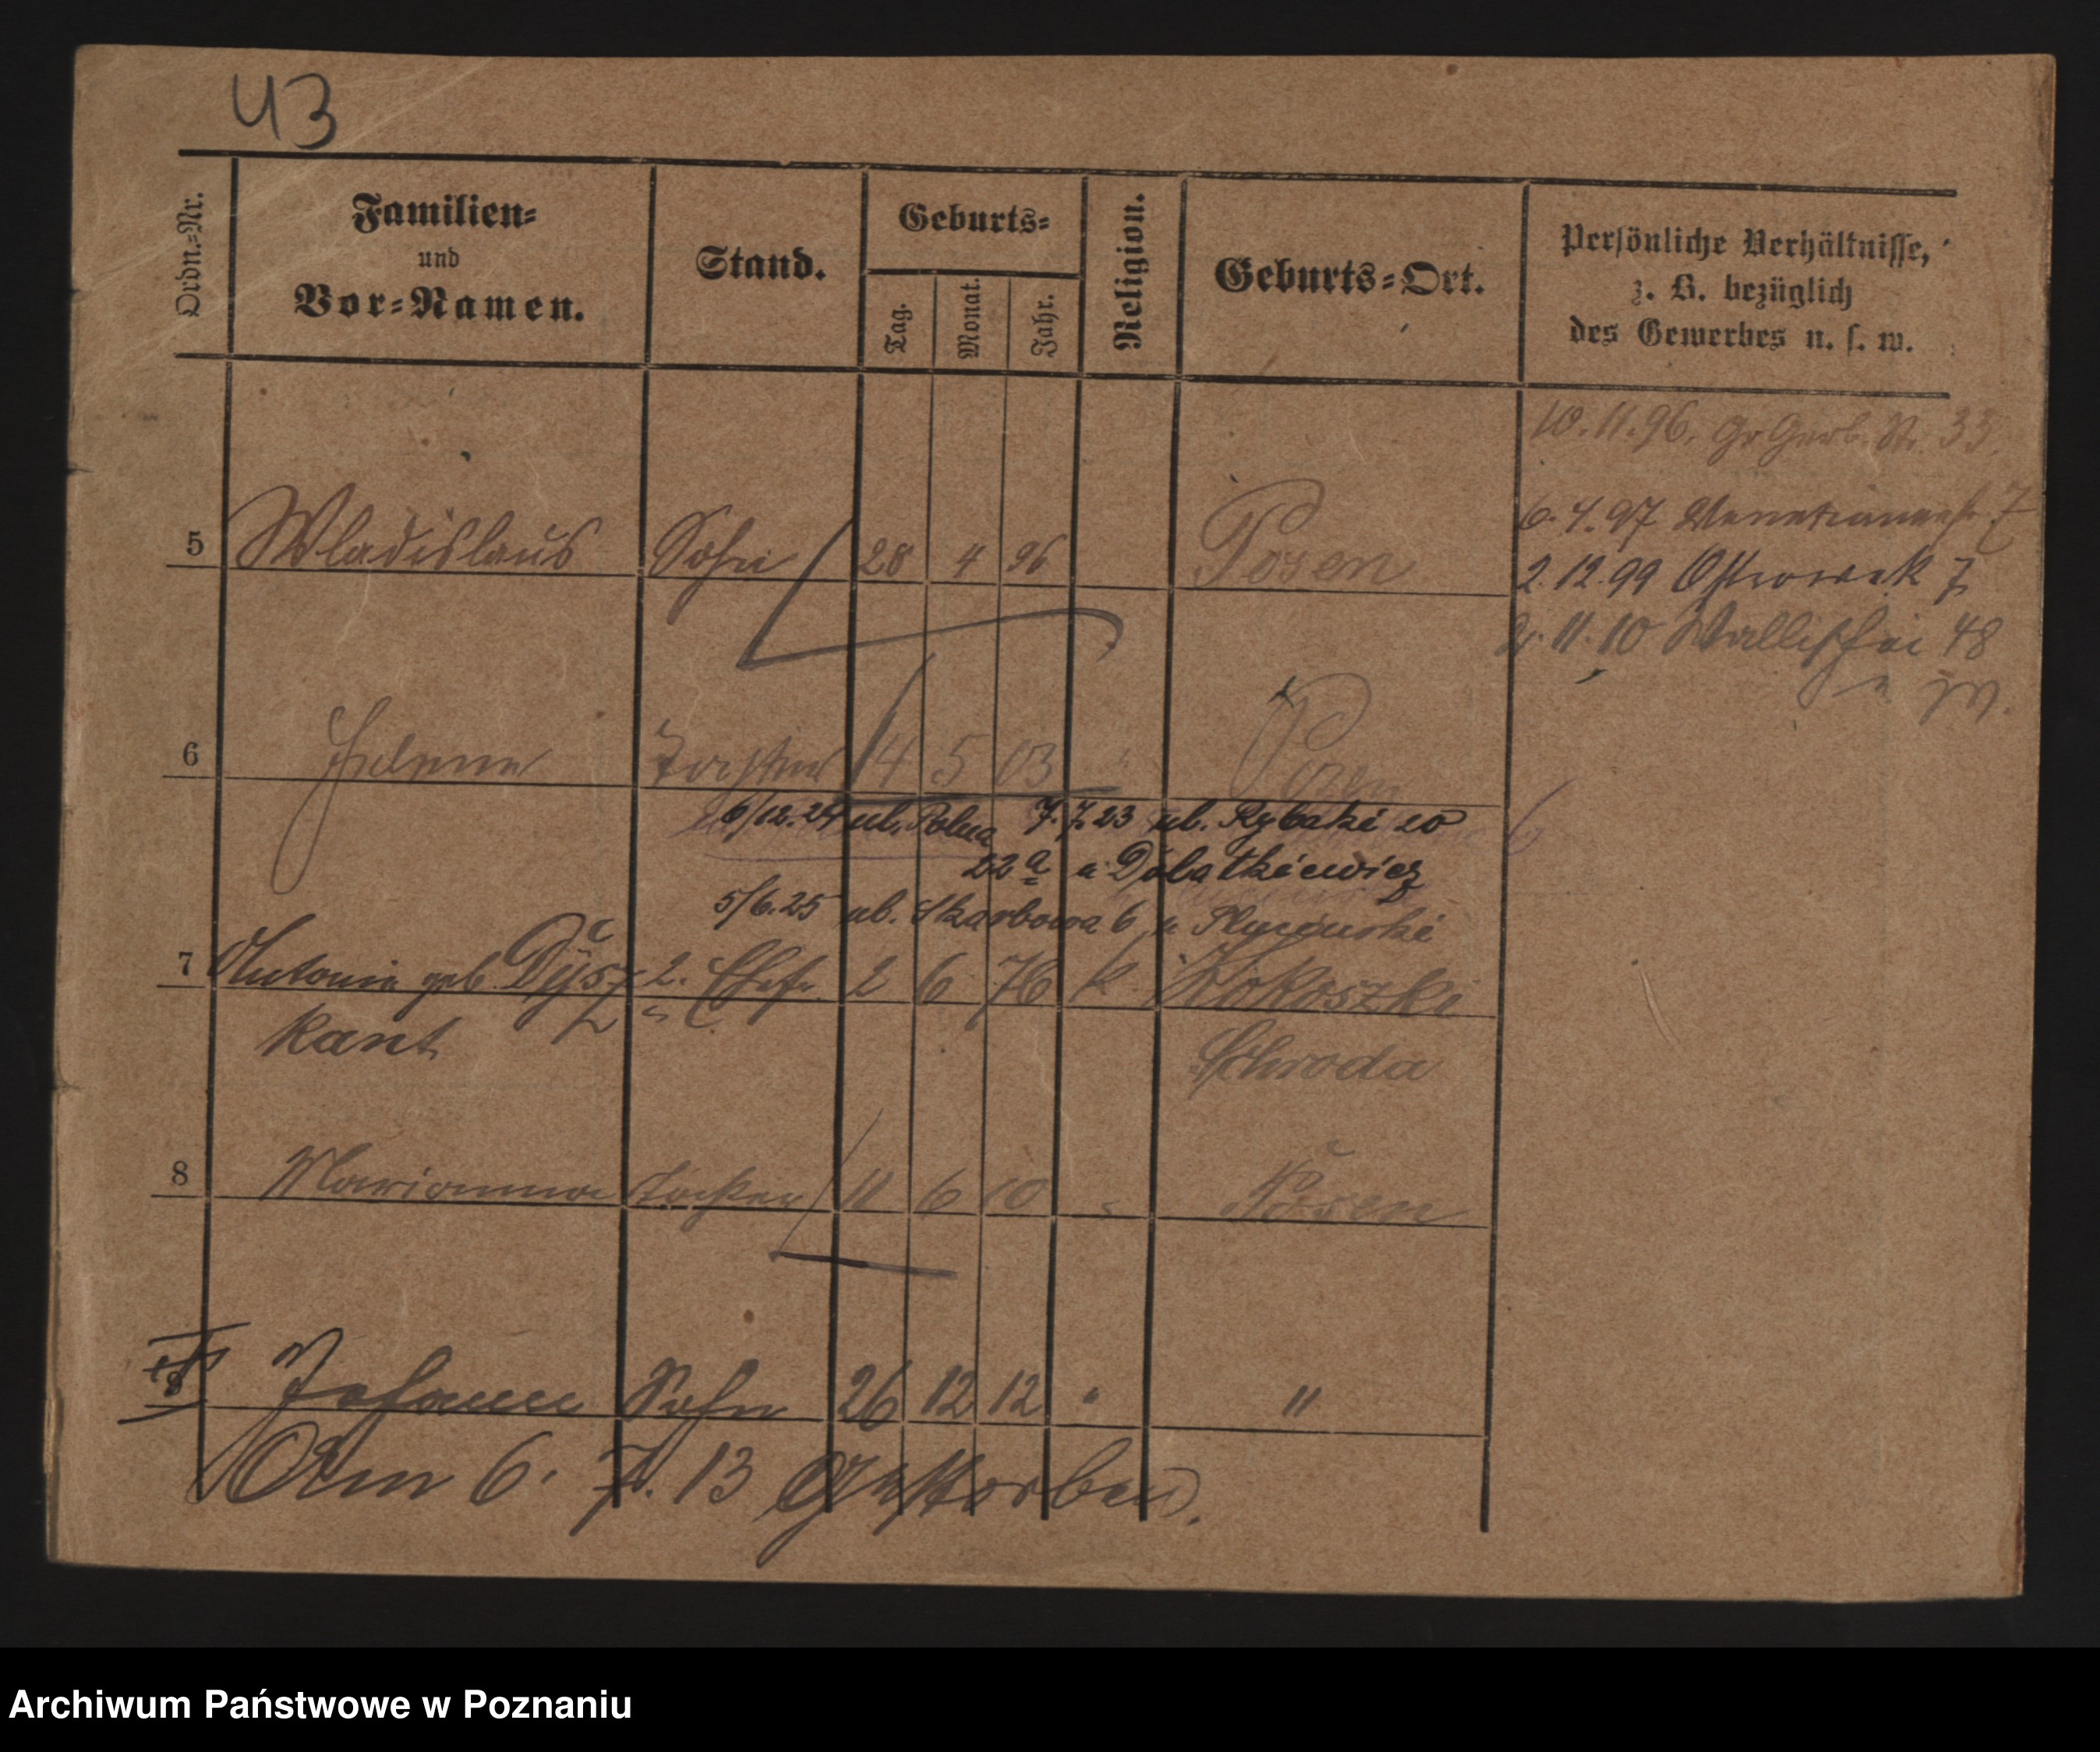 43
Ordn.-Nr.
Familien-
und
Vor-Namen.
Stand.
Geburts-
Tag.
Monat.
Jahr.
Religion.
Geburts-Ort.
Persönliche Verhältnisse,
z. B. bezüglich
des Gewerbes u. s. w.
10.11.96. Gr Gerb. Str. 33.
6.4.97 Venetianerstr. 7
5 Wladislaus Sohn 28 4 96 Posen
2.12.99 Ostrowek 7
11.10 Wallischei 48
6 Helene Tochter 14 5 03 " Posen
6/12.24 ul. Polna 7.7.23 ul. Rybaki 20
22a u
5/6.25 ul. Skarbowa 6 u
7 Antonie geb. Dÿsz 2. Ehefr. 2 6 76 k. Kokoszki
kant Schroda
8 Marianna Tochter 11 6 10 " Posen
Johann Sohn 26 12 12 " "
Am 6. 7. 13 gestorben.
Archiwum Państwowe w Poznaniu